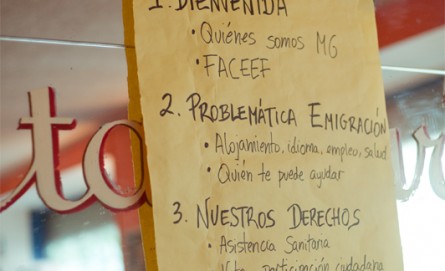 1. BIENVENIDA
• Quiénes somos MG
• FACEEF
2. PROBLEMÁTICA EMIGRACIÓN
• Alojamiento, idioma, empleo, salud
• Quién te puede ayudar
3. NUESTROS DERECHOS
• Asistencia Sanitaria
participación ciudadana
to